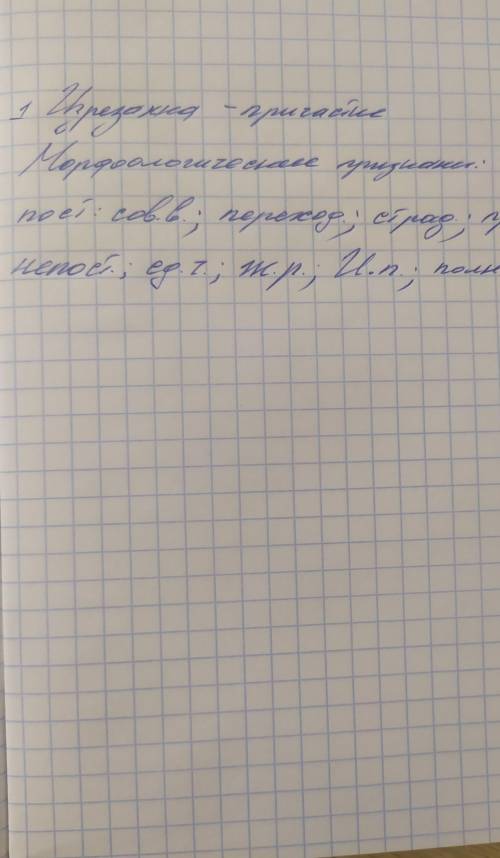 1 Изрезанна - причастие
Морфологические признаки:
пост: сов.в.; переход.; страд.;
непост.; ед.ч.; ж.р.; И.п.; полн